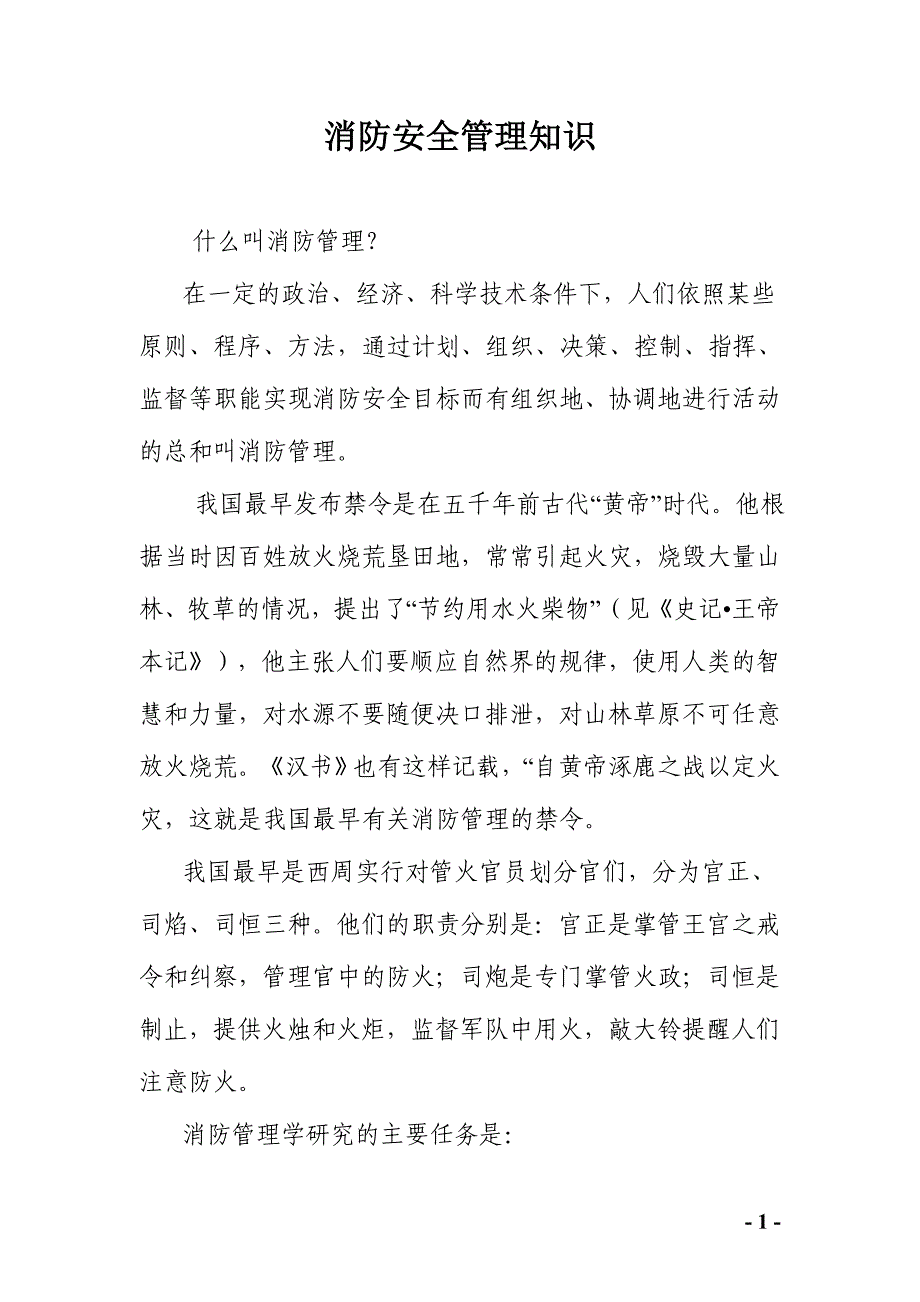 消防安全管理知识
什么叫消防管理？
在一定的政治、经济、科学技术条件下，人们依照某些
原则、程序、方法，通过计划、组织、决策、控制、指挥、
监督等职能实现消防安全目标而有组织地、协调地进行活动
的总和叫消防管理。
我国最早发布禁令是在五千年前古代“黄帝”时代。他根
据当时因百姓放火烧荒垦田地，常常引起火灾，烧毁大量山
林、牧草的情况，提出了“节约用水火柴物”（见《史记•王帝
本记》），他主张人们要顺应自然界的规律，使用人类的智
慧和力量，对水源不要随便决口排泄，对山林草原不可任意
放火烧荒。《汉书》也有这样记载，“自黄帝涿鹿之战以定火
灾，这就是我国最早有关消防管理的禁令。
我国最早是西周实行对管火官员划分官们，分为宫正、
司焰、司恒三种。他们的职责分别是：宫正是掌管王宫之戒
令和纠察，管理官中的防火；司炮是专门掌管火政；司恒是
制止，提供火烛和火炬，监督军队中用火，敲大铃提醒人们
注意防火。
消防管理学研究的主要任务是：
- 1 -